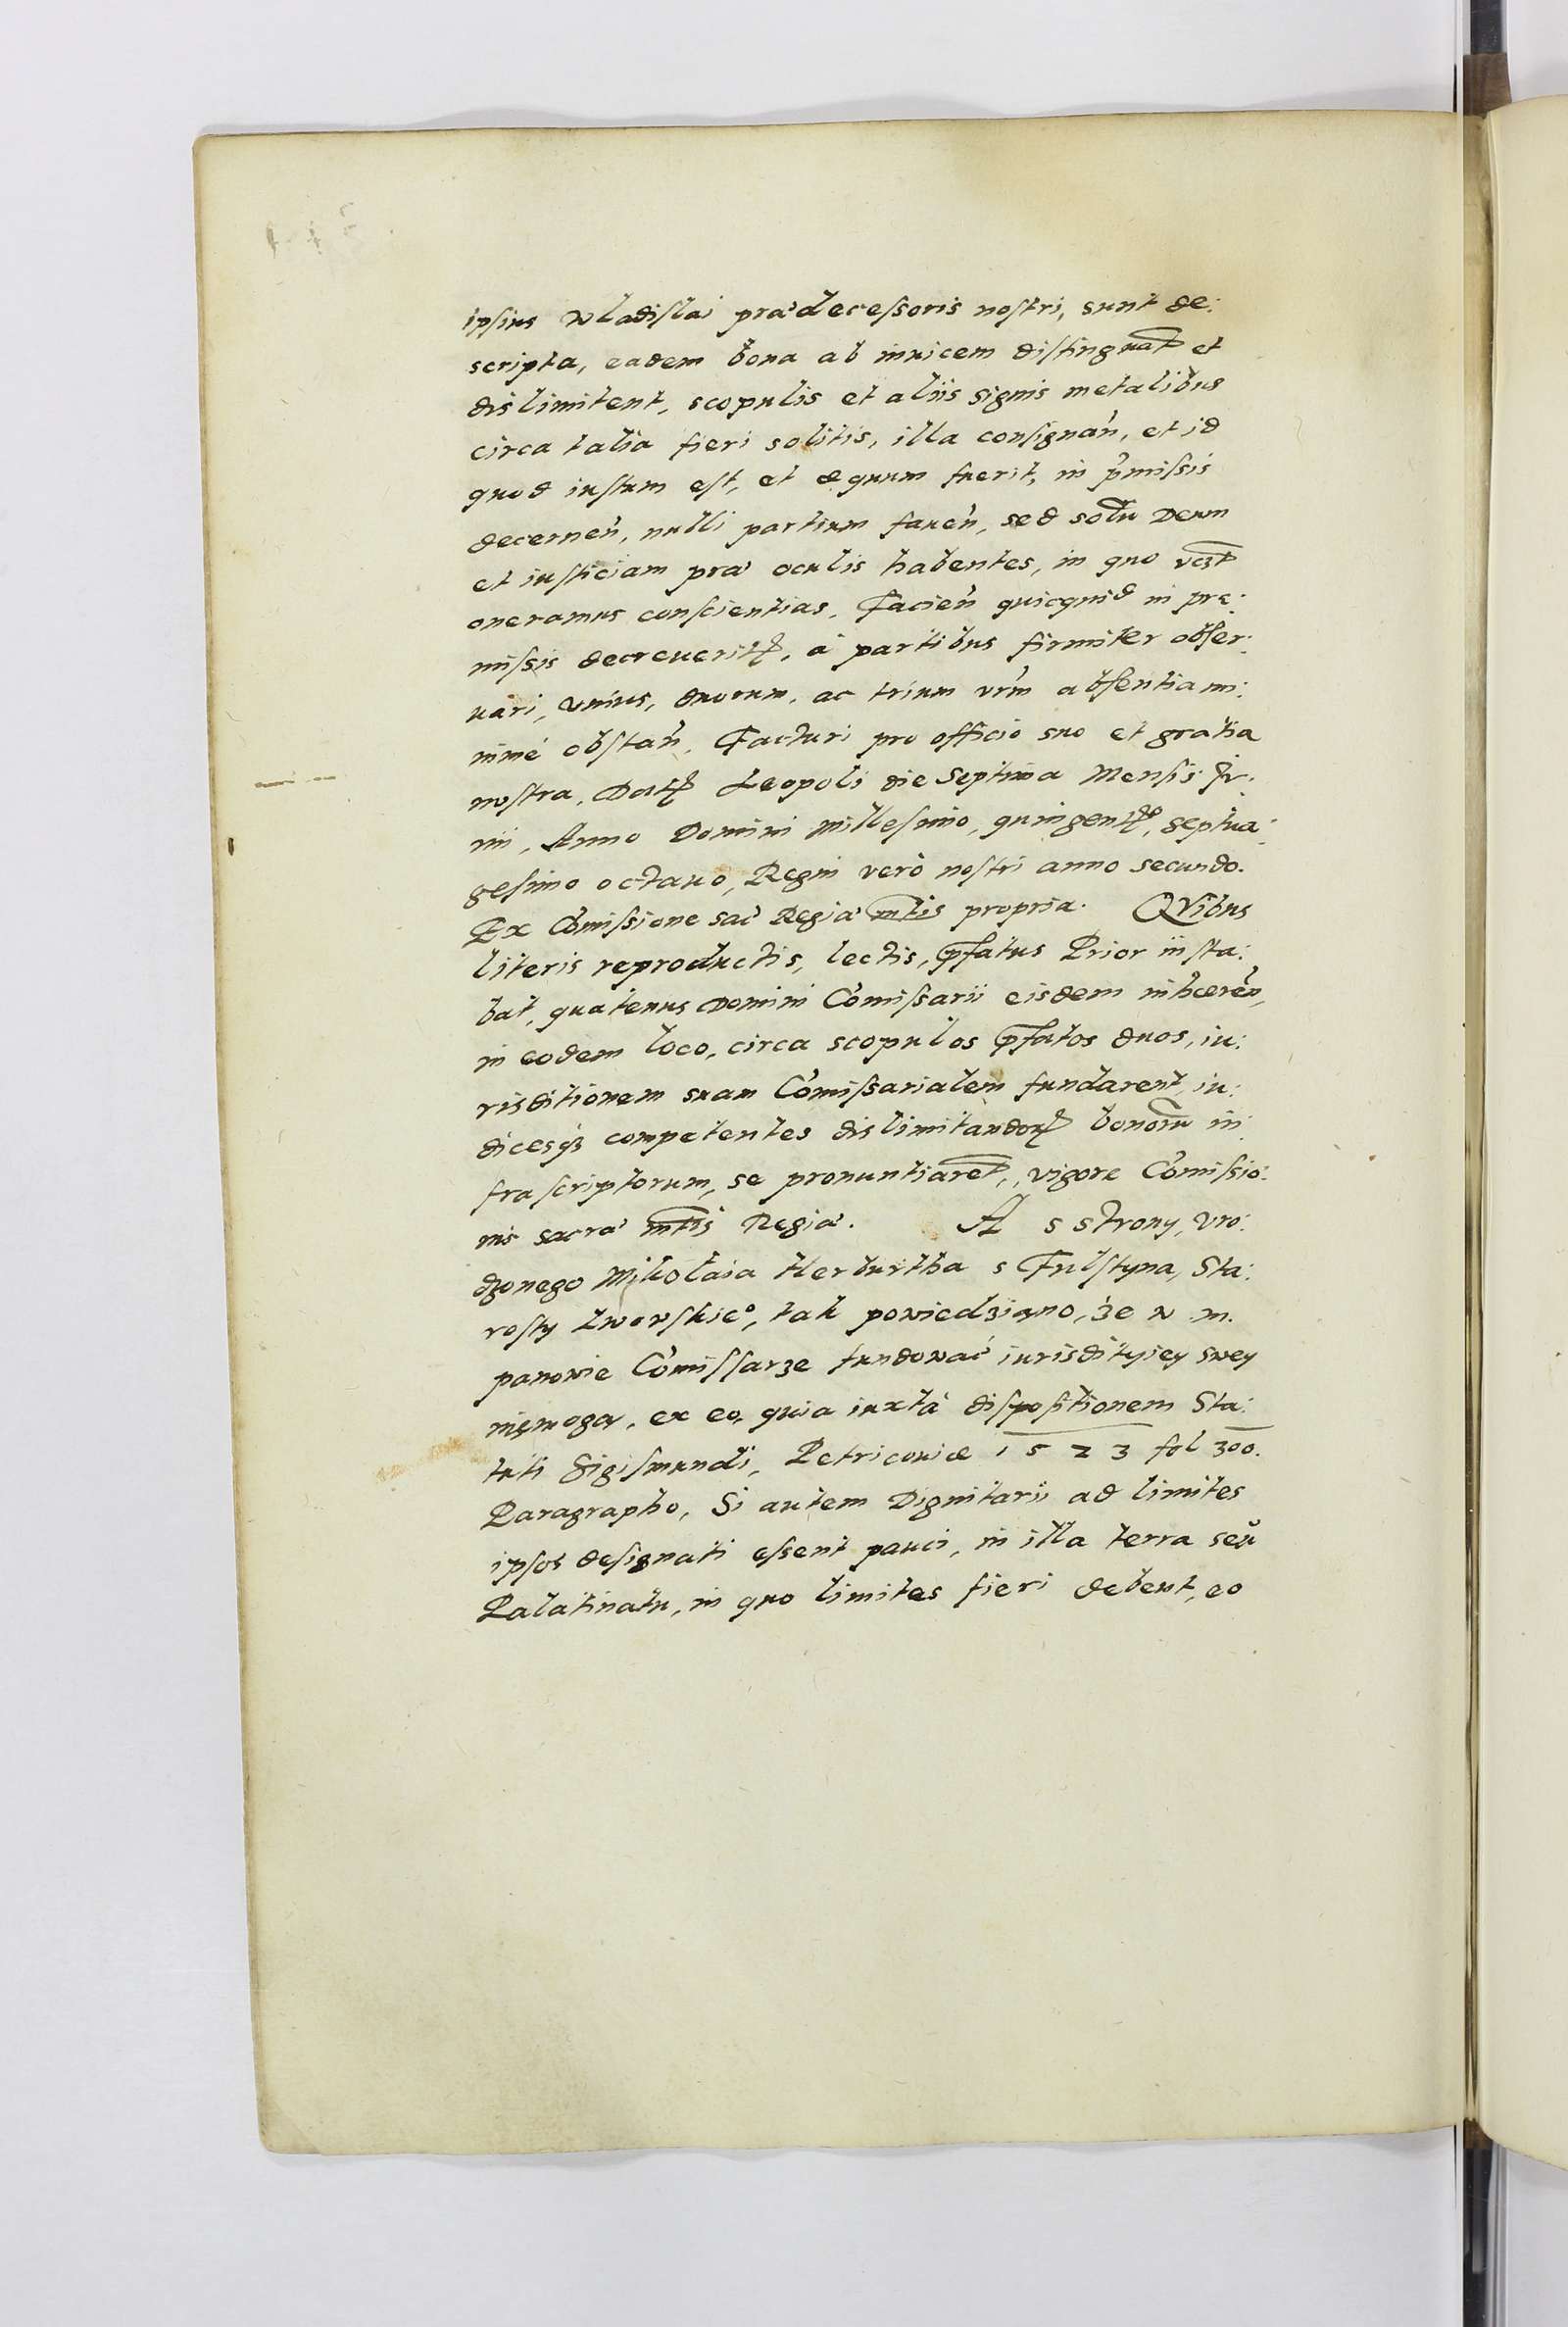 ipsius Wladislai prædecessoris nostri, sunt de:
scripta, eadem bona ab inuicem distinguat̃ et
dislimitent, scopulis et aliis signis metalibus
circa talia fieri solitis, illa consignan̉, et id
quod iustum est, et æquum fuerit, in p̉missis
decernen̉, nulli partium fauen̉, sed solũ Deum
et iusticiam præ oculis habentes, in quo vest̃
oneramus conscientias. Facien̉ quicquid in pre:
missis decreueritꝭ, à partibus firmiter obser:
uari, vnius, duorum, ac trium vr̃m absentia mi:
nimé obstan̉. Facturi pro officio suo et gratia
nostra. Datꝭ Leopoli die Septima Mensis Iu:
nii, Anno Domini Millesimo, quingentꝭo, septua:
gesimo octauo, Regni verò nostri anno secundo.
Ex Com̉issione sac̉ Regiæ mt̃is propria. QVibus
literis reproductis, lectis, p̃fatus Prior insta:
bat, quatenus Domini Com̉issarii eisdem inhæren̉,
in eodem loco, circa scopulos p̃fatos duos, iu:
risditionem suam Com̉issarialem fundarent, iu:
dicesqꝫ competentes dislimitandorꝭ bonorũ in
frascriptorum, se pronuntiaret̃, vigore Com̉issio:
nis sacræ mt̃is Regiæ. A s strony, vro:
dzonego Mikołaia Herburtha s Fulstyna, Sta:
rosty Lwowskieo, tak powiedziano, że w. m.
panowie Com̉issarze fundować iurisdityiey swey
niemogą, ex eo, quia iuxtà dispositionem Sta:
tuti Sigismundi, Petricouiæ 1523 fol 300.
Paragrapho, Si autem Dignitarii ad limites
ipsos designati essent pauci, in illa terra seu
Palatinatu, in quo limites fieri debent, eo